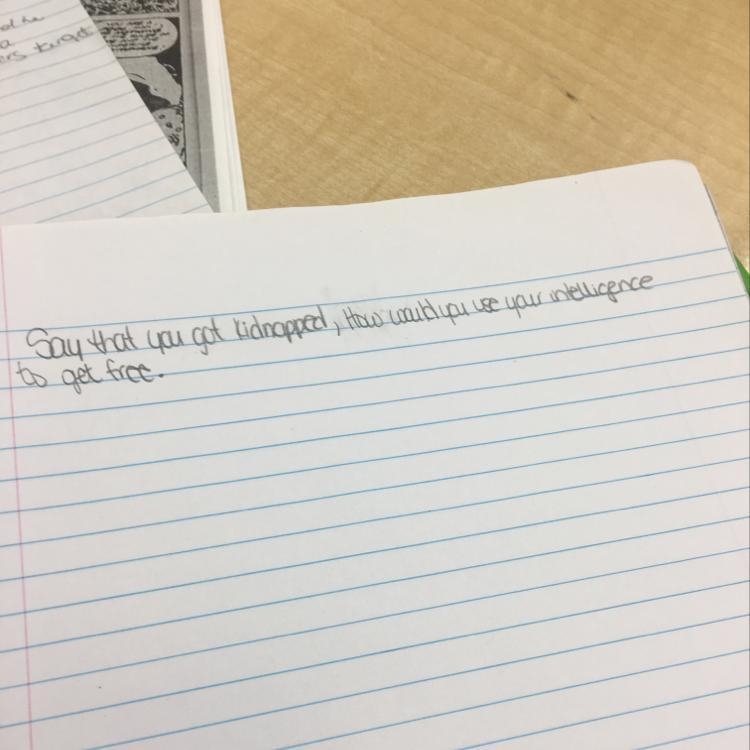 a
target
Say that you got kidnapped, How would you use your intelligence
to get free.